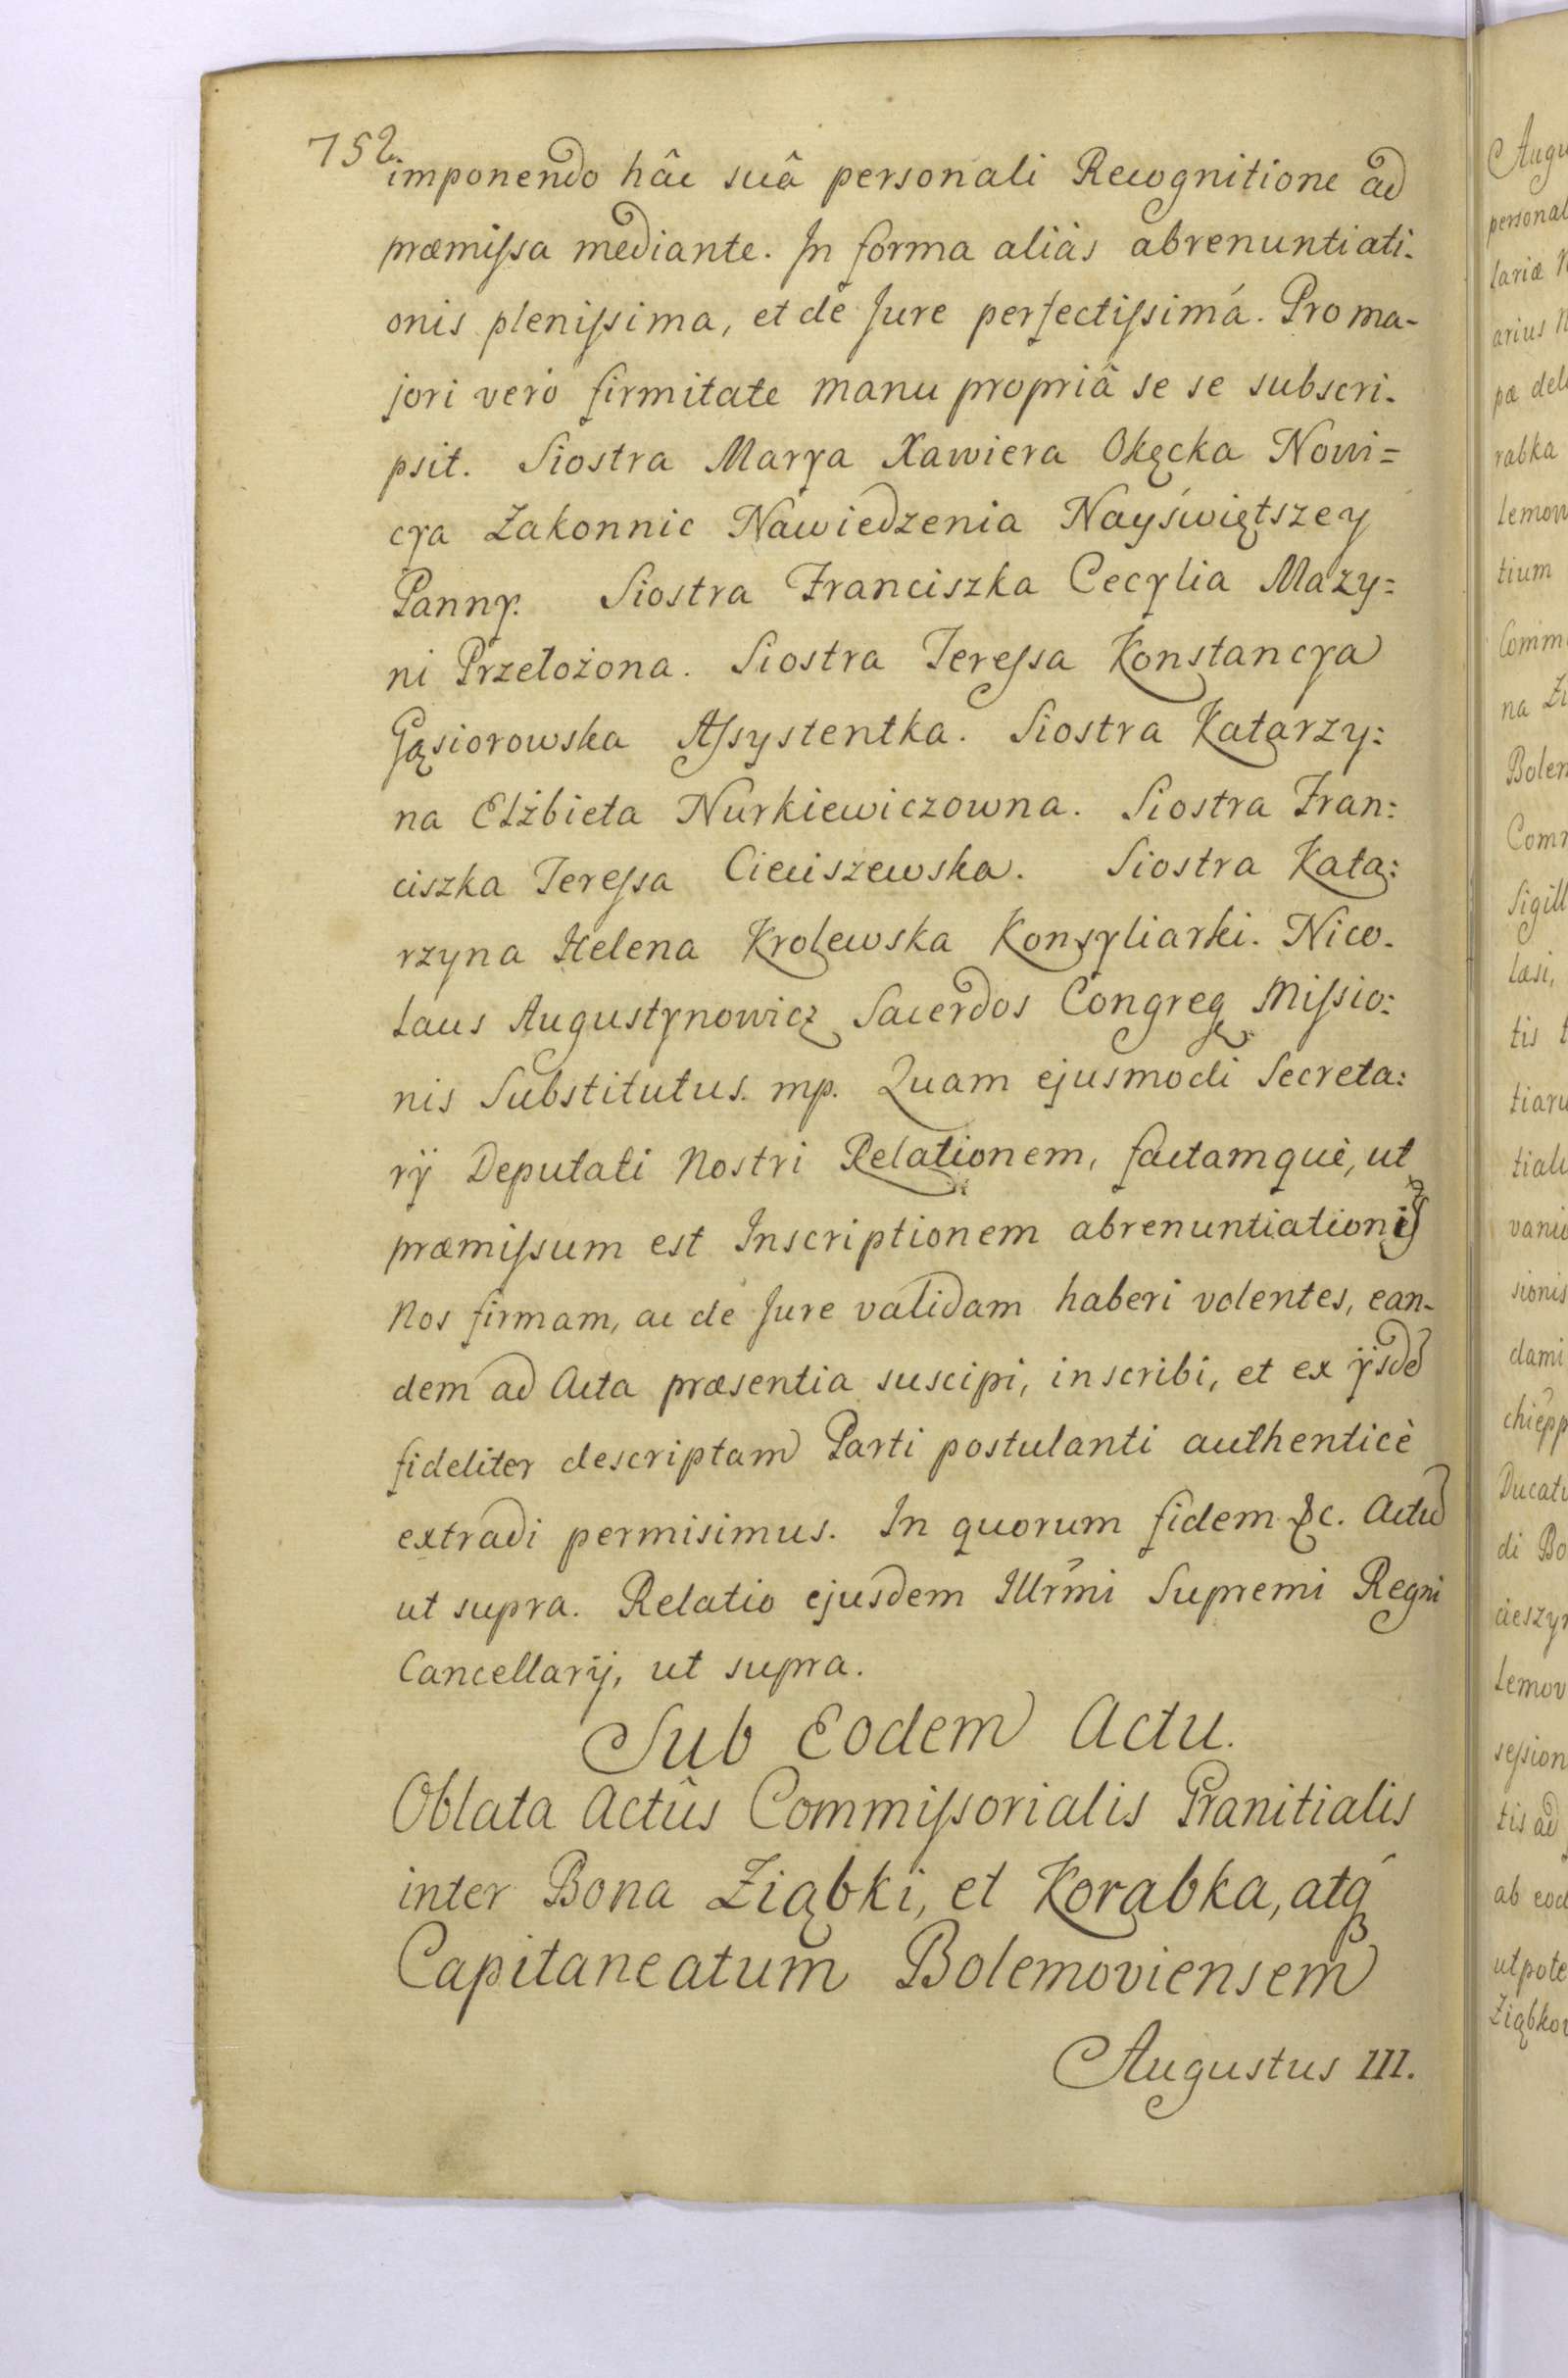 752.
imponendo hâc suâ personali Recognitione ad
præmissa mediante. In forma aliàs abrenuntiati-
onis plenissima, et de Jure perfectissimá. Pro ma-
jori verò firmitate manu propriâ se se subscri-
psit. Siostra Marya Xawiera Okęcka Nowi=
cya Zakonnic Nawiedzenia Nayświętszey
Panny. Siostra Franciszka Cecylia Mazy=
ni Przełożona. Siostra Teressa Konstancya
Gąsiorowska Assystentka. Siostra Katarzy:
na Elżbieta Nurkiewiczowna. Siostra Fran:
ciszka Teressa Cieciszewska. Siostra Kata:
rzyna Helena Krolewska Konsyliarki. Nico-
laus Augustynowicz Sacerdos Congreg Missio:
nis Substitutus. mp. Quam ejusmodi Secreta:
rij Deputati Nostri Relationem, factamquè, ut
præmissum est Inscriptionem abrenuntiationis
Nos firmam, ac de Jure validam haberi volentes, ean-
dem ad Acta præsentia suscipi, inscribi, et ex ijsdē
fideliter descriptam Parti postulanti authenticè
extradi permisimus. In quorum fidem &c. Actū
ut supra. Relatio ejusdem Illrmi Supremi Regni
Cancellarij, ut supra.
Sub Eodem Actu.
Oblata Actûs Commissorialis Granitialis
inter Bona Ziąbki, et Korabka, atq́
Capitaneatum Bolemoviensem
Augustus III.
Augu
personal
lariæ
arius
pæ dele
rabka
lemow
tium
Comm
na Zi
Bolem
Comm
Sigill
læsi,
tis
tiaru
tiali
vanio
sionis
dami
Ducatu
di Bo
cieszyn
lemov
session
tis ad
ab eod
utpote
Ziąbkow